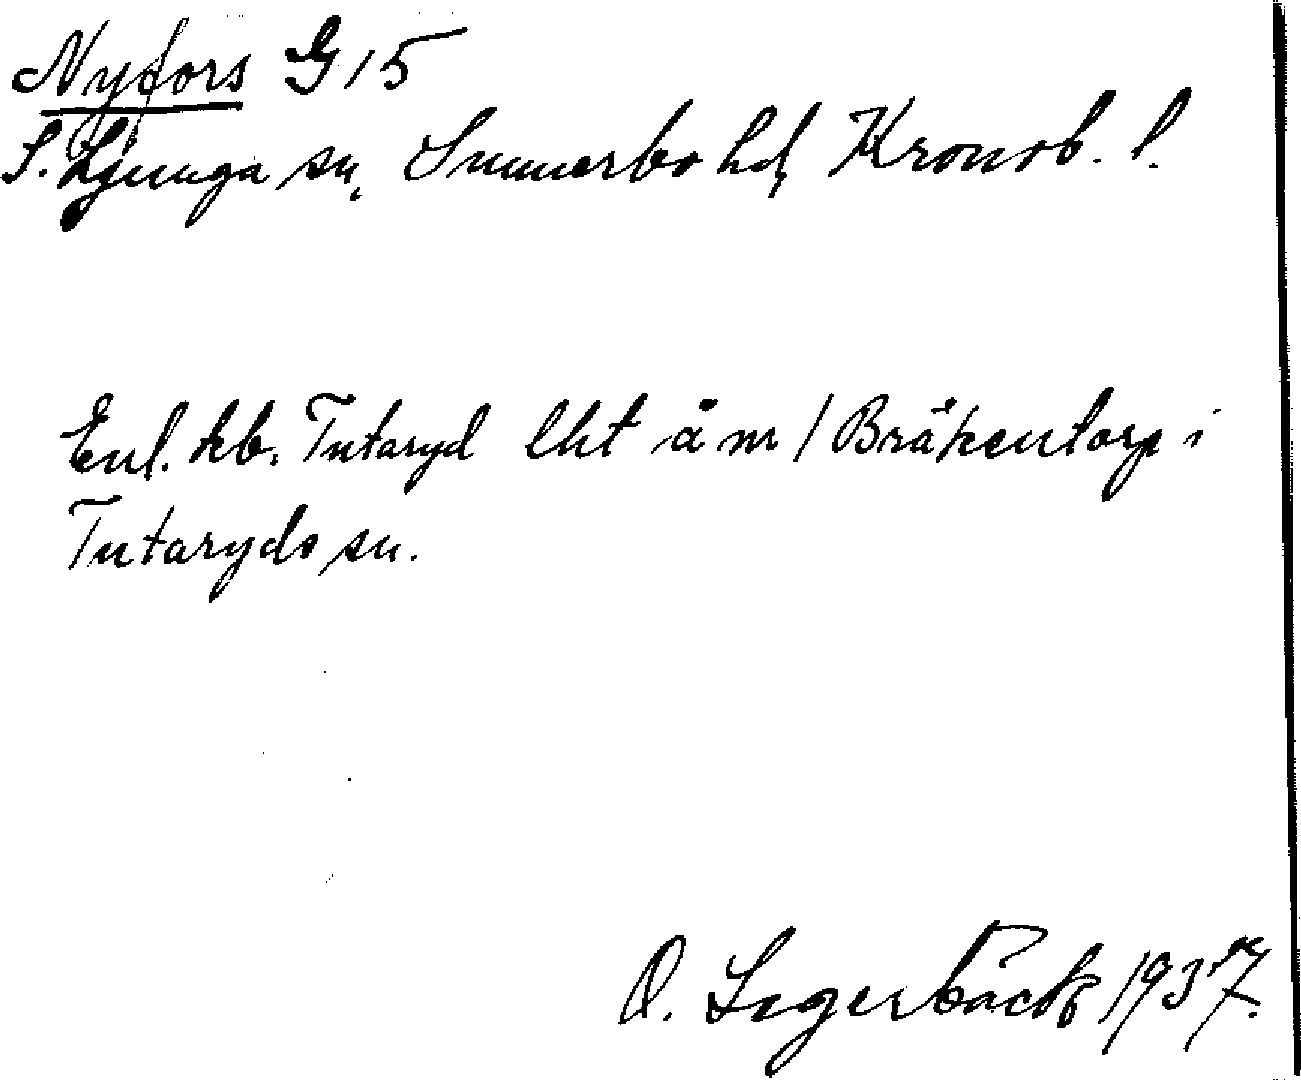 Nyfors G 15
S. Ljunga sn, Sunnerbo hd, Kronob. l.
Enl. kb. Tutaryd lht å nr 1 Bräkentorp i
Tutaryds sn.
O. Segerbäck 1937.